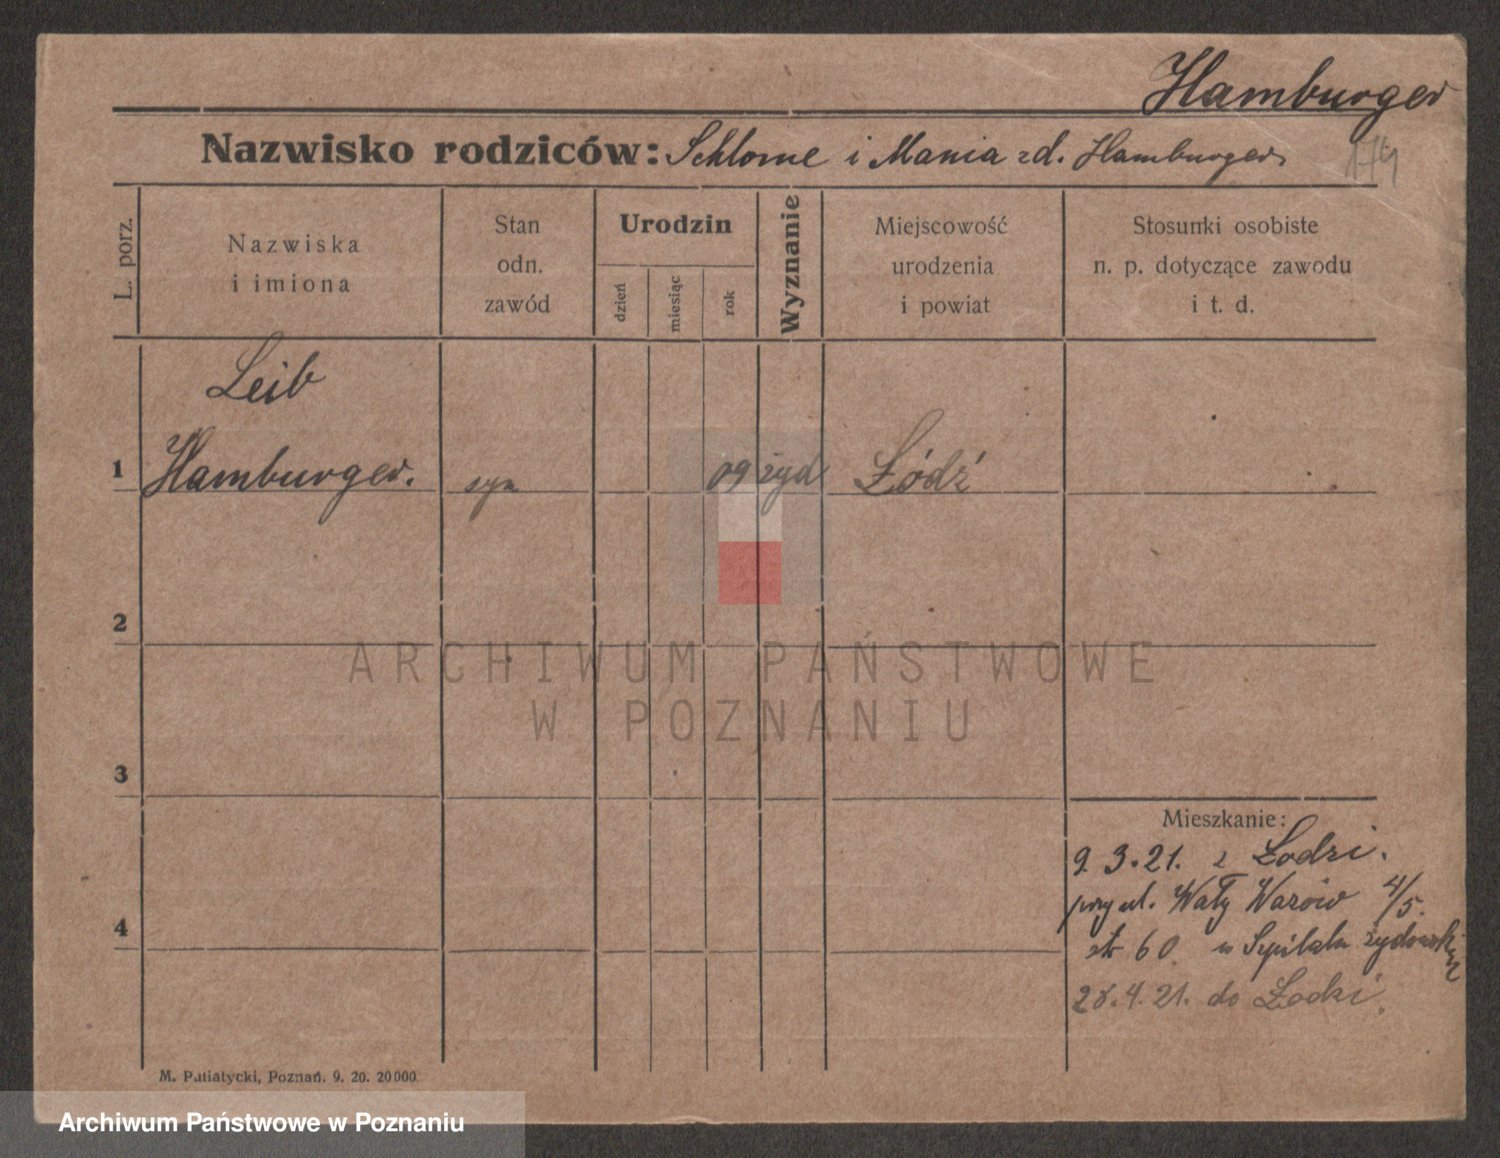 Hamburger
Nazwisko rodziców: Schlome i Mania zd. Hamburger
L. porz.
Nazwiska
i imiona
Stan
odn.
zawód
Urodzin
dzień
miesiąc
rok
Wyznanie
Miejscowość
urodzenia
i powiat
Stosunki osobiste
n. p. dotyczące zawodu
i t. d.
Leib
1 Hamburger. syn 09 żyd Łódź
2
ARCHIWUM PAŃSTWOWE
W POZNANIU
3
Mieszkanie:
9.3.21. z Łodzi.
przy ul. Wały Wazów 4/5.
4
60 w Szpitalu żydowskim
28.4.21. do Łodzi.
M. Putiatycki, Poznań. 9. 20. 20000.
Archiwum Państwowe w Poznaniu